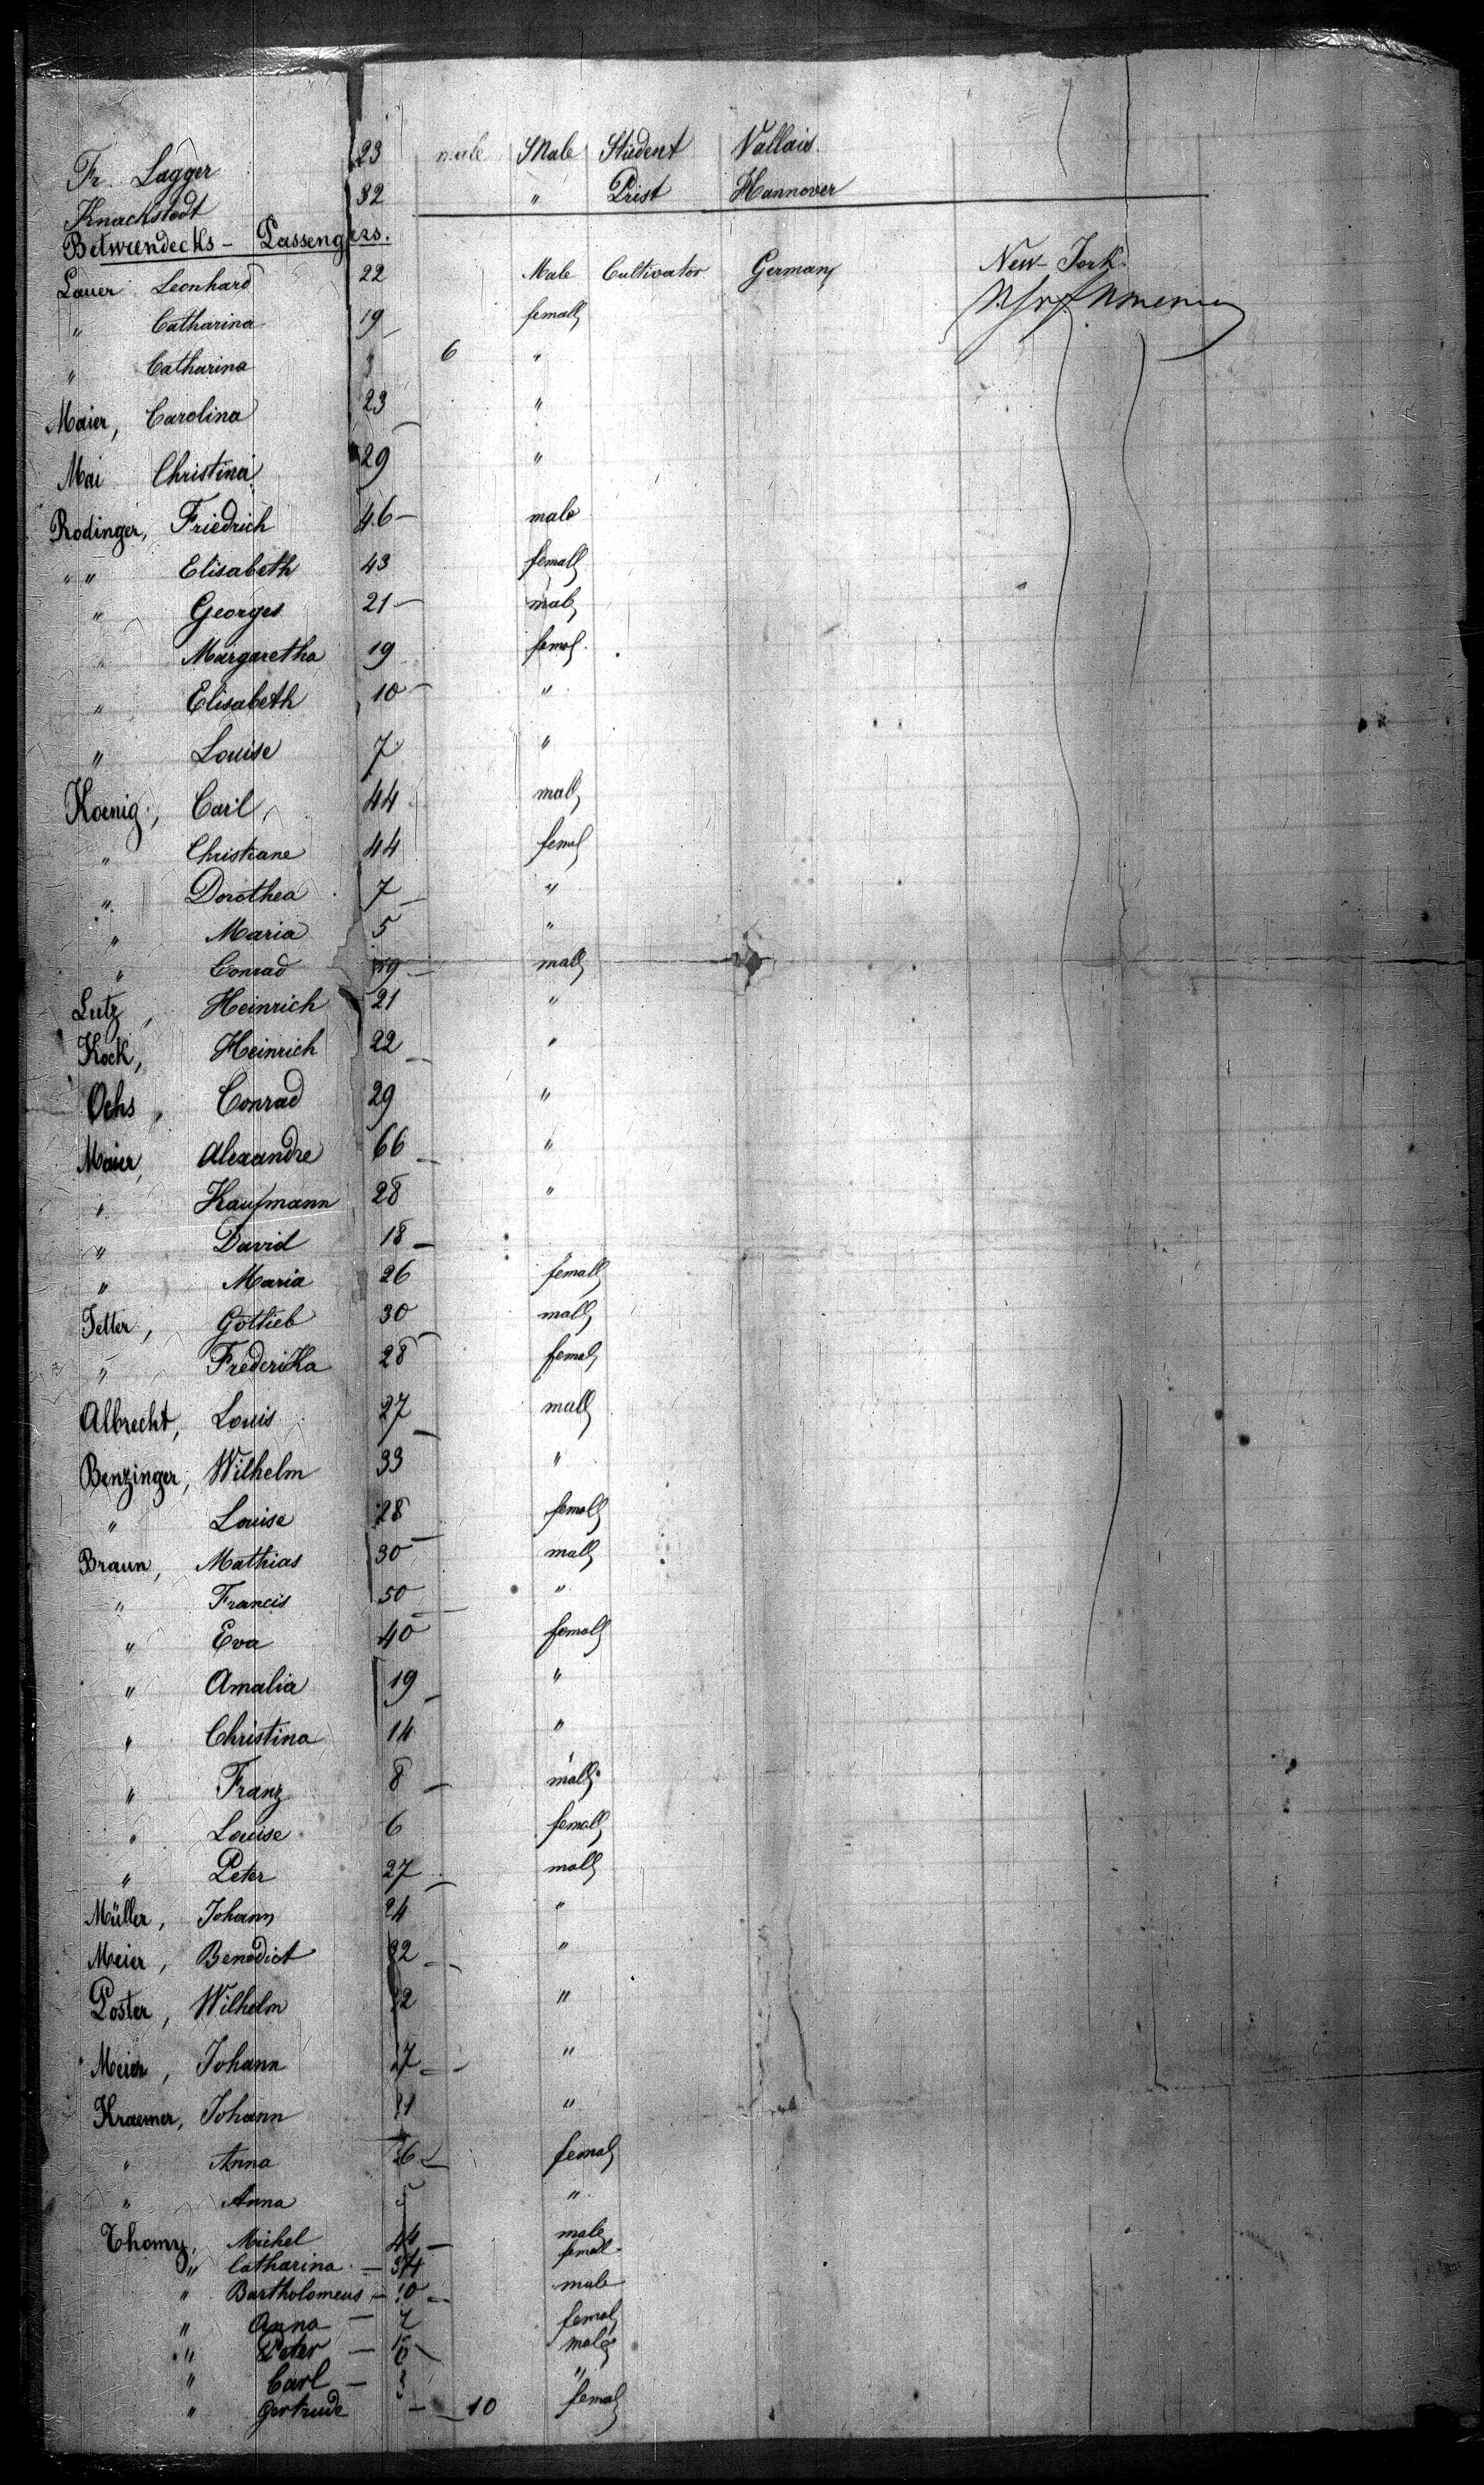 Fr. Lagger 23 male Male Student Vallais.
Knackstedt 32 " Prist Hannover
Betweendecks - Passengers.
Lauer Leonhard 22 Male Cultivator Germany New-York.
" Catharina 19 femall
" Catharina " 6 "
Maier, Carolina 23 "
Mai Christina 29 "
Rodinger, Friedrich 46 male
" " Elisabeth 43 femall
" Georges 21 male
" Margaretha 19 femal.
" Elisabeth 10 "
" Louise 7 "
Koenig, Carl, 44 mall
" Christiane 44 femal
" Dorothea 7 "
" Maria 5 "
" Conrad mall
Lutz, Heinrich 21 "
Kock, Heinrich 22 "
Ochs, Conrad 29 "
Maier, Alexandre 66 "
" Kaufmann 28 "
" David 18
" Maria 26 femall
Gottieb 30 mall
" Frederika 28 femal
Albrecht, Louis 27 mall
Benzinger, Wilhelm 33 "
" Louise 28 femall
Braun, Mathias 30 mall
" Francis 50 "
" Eva 40 femall
" Amalia 19 "
" Christina 14 "
" Franz 8 mall
" Louise 6 femall
" Peter 27 mall
Müller, Johann 24 "
Meier, Benedict 32 "
Poster, Wilhelm "
Meier, Johann 27 "
Kraemer, Johann "
" Anna 26 femal
" Anna "
Thomy, Michel 44 male
" Catharina - 34 femall
" Bartholomeus - 10 male
" Anna - 7 femal
" Peter - male
" Carl - 3 "
" Gertrude - 10 femal